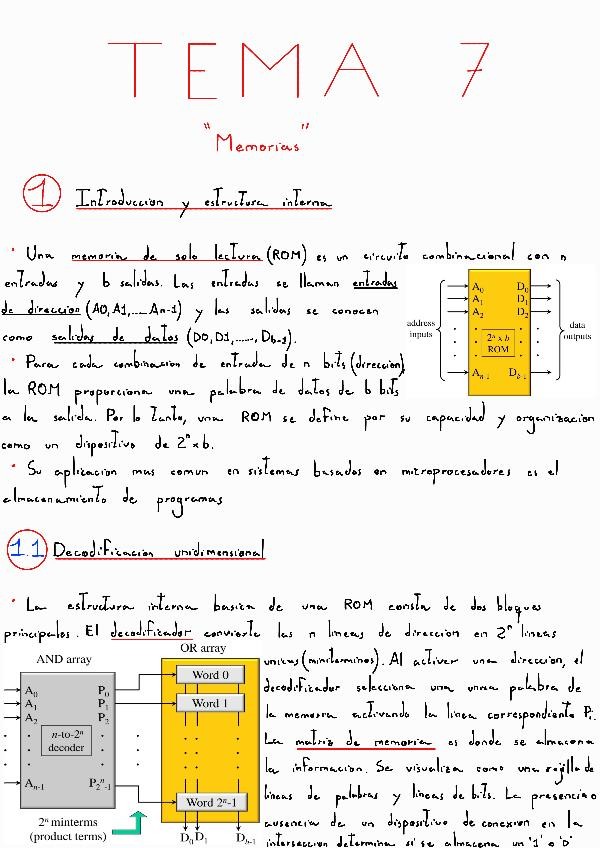 TEMA 7
"Memorias"
1 Introduccion y estructura interna
· Una memoria de solo lectura (ROM) es un circuito combinacional con n
entradas y b salidas. Las entradas se llaman entradas
de direccion (A0, A1, .... An-1) y las salidas se conocen
como salidas de datos (D0, D1, ......, Db-1).
address
inputs
A0
A1
A2
An-1
2^n x b
ROM
D0
D1
D2
Db-1
data
outputs
· Para cada combinacion de entrada de n bits (direccion)
la ROM proporciona una palabra de datos de b bits
a la salida. Por lo tanto, una ROM se define por su capacidad y organizacion
como un dispositivo de 2^n x b.
· Su aplicacion mas comun en sistemas basados en microprocesadores es el
almacenamiento de programas
1.1 Decodificacion unidimensional
· La estructura interna basica de una ROM consta de dos bloques
principales. El decodificador convierte las n lineas de direccion en 2^n lineas
unicas (miniterminos). Al activar una direccion, el
decodificador selecciona una unica palabra de
la memoria activando la linea correspondiente Pi.
La matriz de memoria es donde se almacena
la informacion. Se visualiza como una rejilla de
lineas de palabras y lineas de bits. La presencia o
ausencia de un dispositivo de conexion en la
interseccion determina si se almacena un '1' o '0'
AND array
OR array
A0
A1
A2
An-1
n-to-2^n
decoder
P0
P1
P2
P2^n-1
Word 0
Word 1
Word 2^n-1
2^n minterms
(product terms)
D0 D1 Db-1